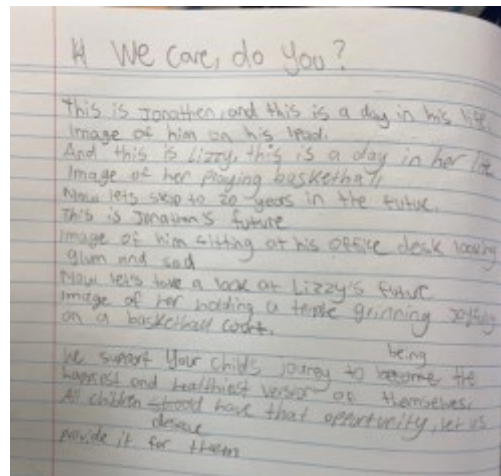 We care, do you?
This is Jonathen, and this is a day in his life
Image of him on his Ipad.
And this is Lizzy, this is a day in her life
Image of her playing basketball
Now lets skip to 20 years in the future.
This is Jonathan's future
Image of him sitting at his office desk looking
glum and sad
Now let's take a look at Lizzy's future
Image of her holding a grinning joyfully
on a basketball court.
being
We support Your child's journey to become the
happiest and healthiest version of themselves.
All children should have that opportunity, let us
deserve
provide it for them